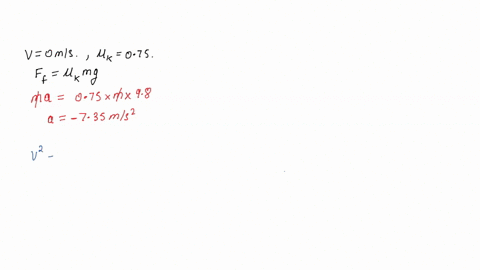 V = 0 m/s. , μₖ = 0.75.
F_f = μₖ mg
m̸a = 0.75 × m̸ × 9.8
a = -7.35 m/s²
V² -